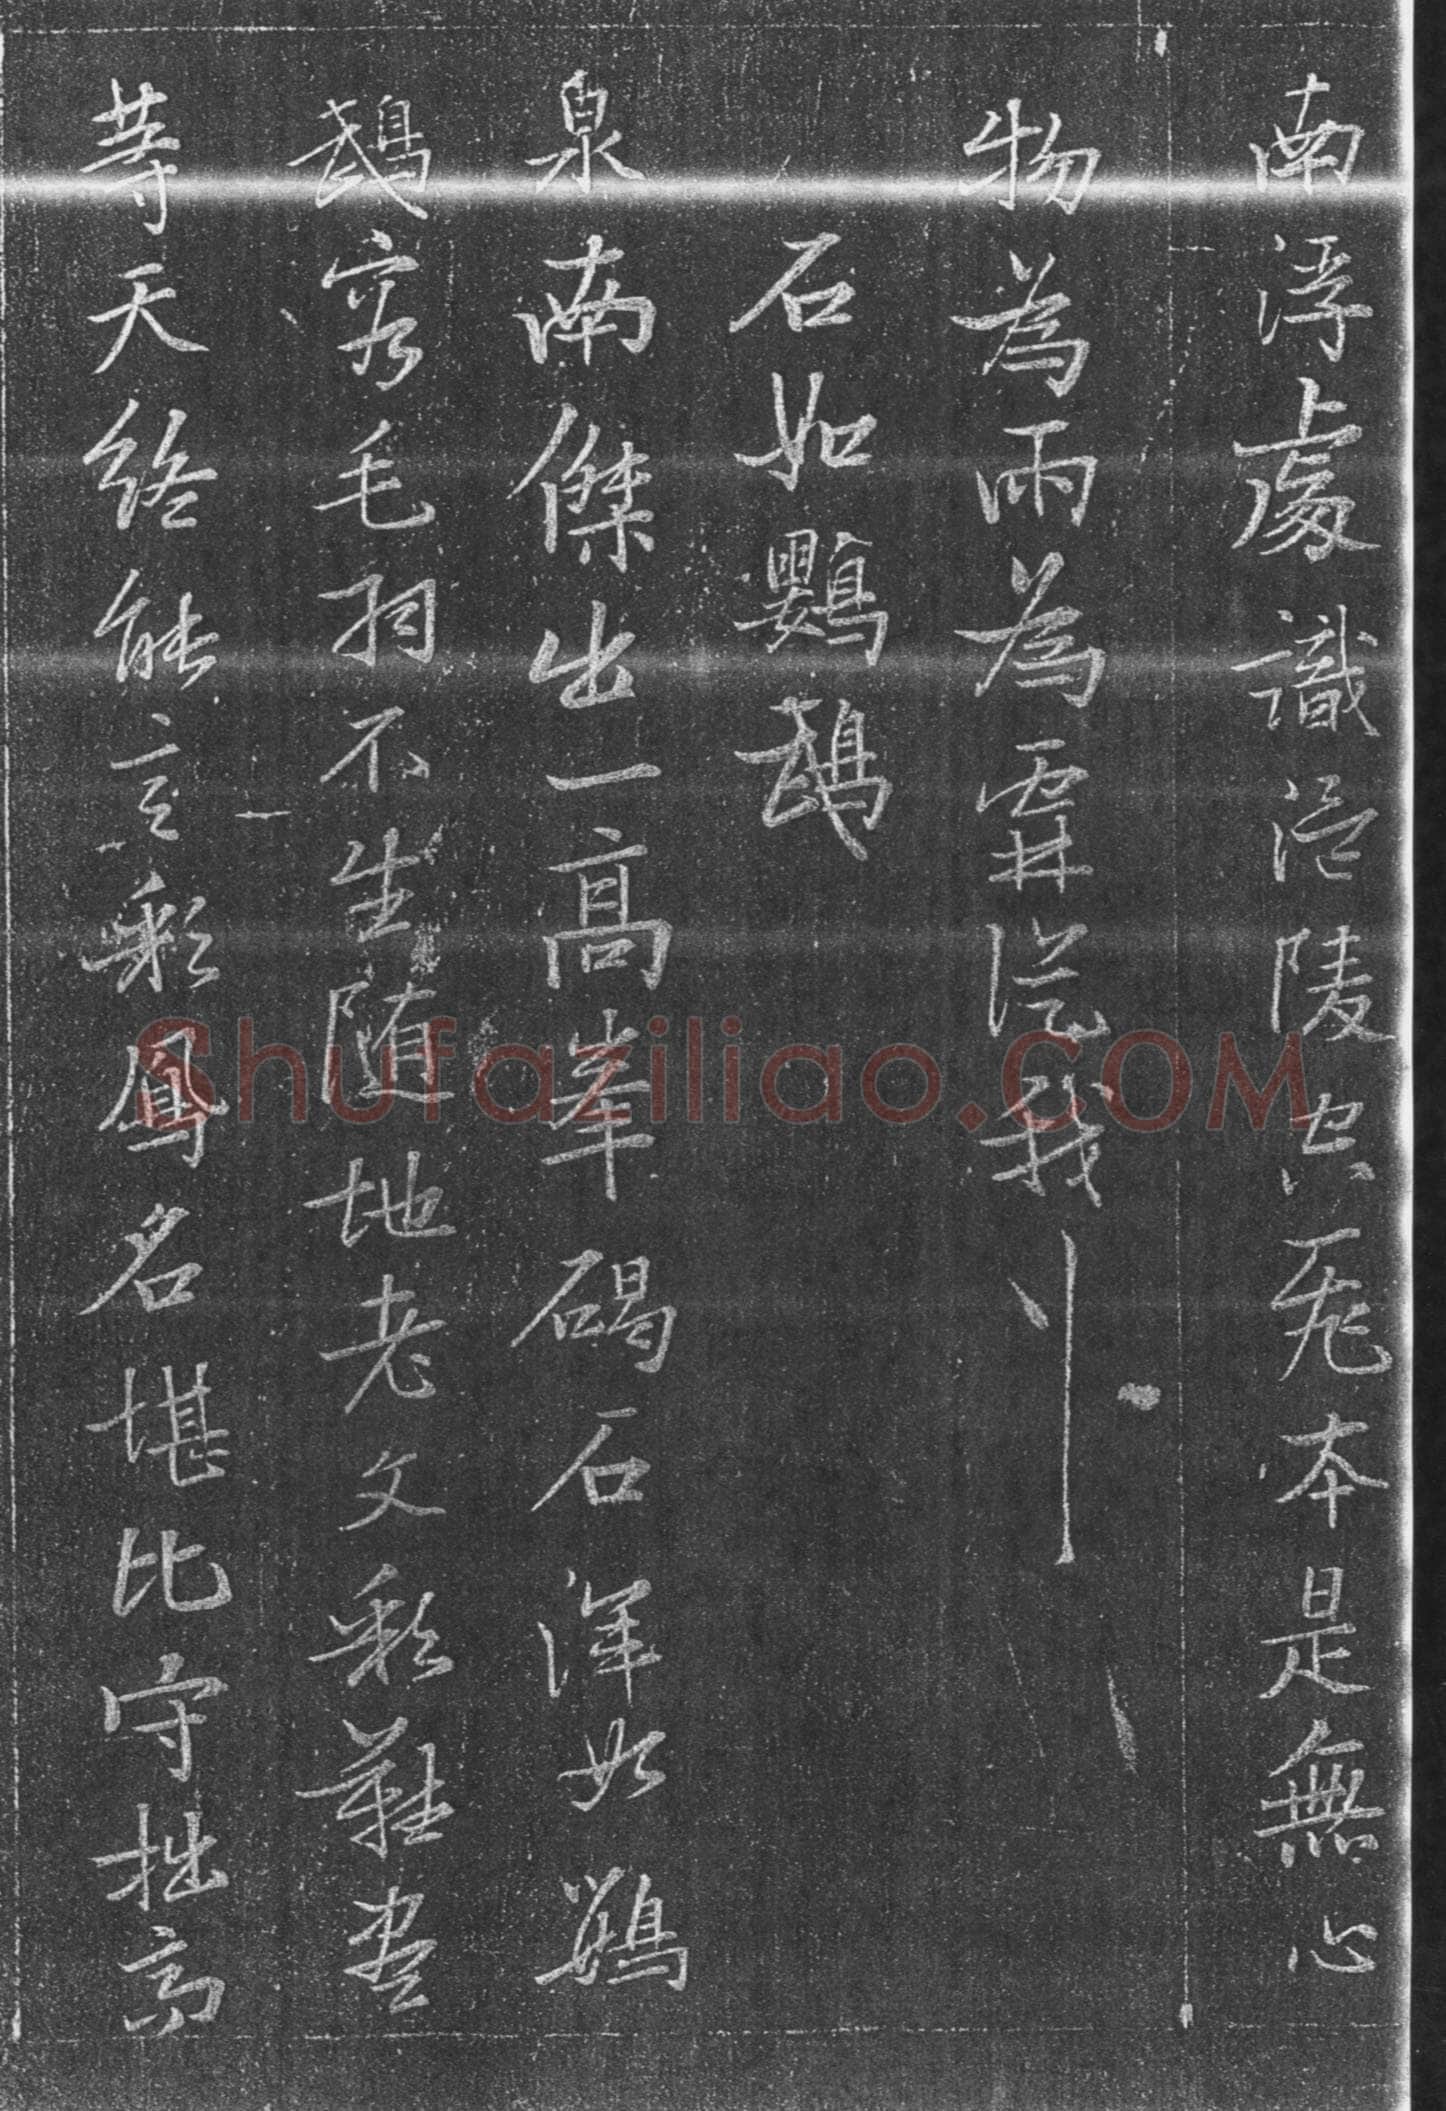 南浮處識涪陵
本是無心
物為雨為霖從我
石如鸚鵡
泉南傑出一高峯碣石渾如鸚
鵡容毛羽不生隨地老文彩難盡
等天終能言彩鳳名堪比守拙高
Shufaziliao.COM